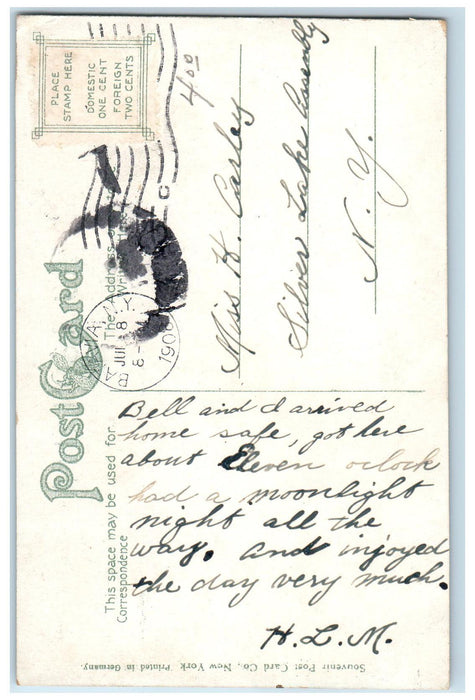 Post Card
This space may be used for
Correspondence
PLACE
STAMP HERE
DOMESTIC
ONE CENT
FOREIGN
TWO CENTS
BATAVIA, N.Y.
JUL 8
8-
4.00
Miss H. Carley
Silver Lake Assembly
N. Y.
Bell and I arrived
home safe, got here
about Eleven oclock
had a moonlight
night all the
way. And injoyed
the day very much.
H. L. M.
Souvenir Post Card Co., New York Printed in Germany.